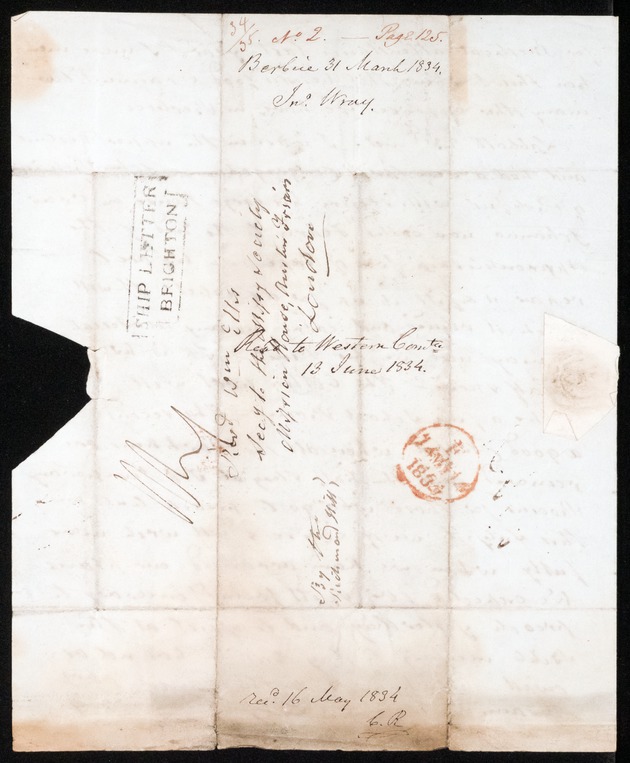 34/35. No. 2. — Page 125.
Berbice 31 March 1834.
Jno. Wray.
SHIP LETTER
BRIGHTON
Revd. Wm Ellis
Secy to the Missy Society
Mission House, Austin Friars
London
Refd. to Western Comtee
13 June 1834.
1834
By the
Richmond Hill
recd. 16 May 1834